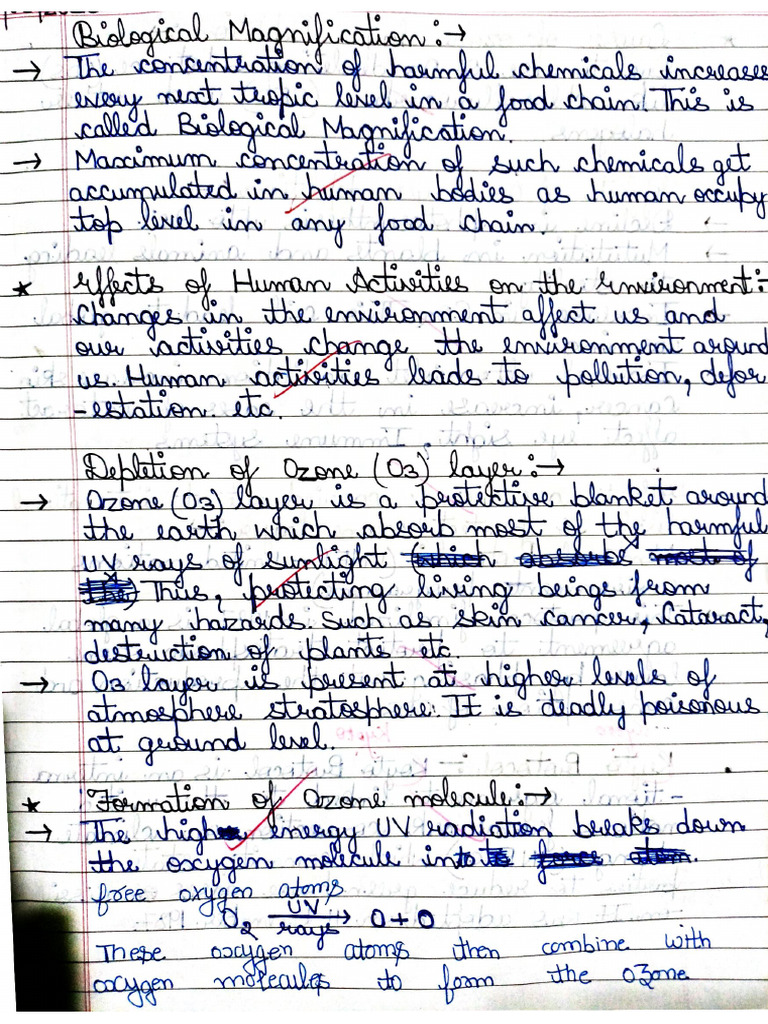 Biological Magnification :→
→ The concentration of harmful chemicals increases
every next tropic level in a food chain. This is
called Biological Magnification.
→ Maximum concentration of such chemicals get
accumulated in human bodies as human occupy
top level in any food chain.
* Effects of Human Activities on the Environment:-
Changes in the environment affect us and
our activities change the environment around
us. Human activities leads to pollution, defor
-estation etc.
Depletion of Ozone (O3) layer :→
→ Ozone (O3) layer is a protective blanket around
the earth which absorb most of the harmful
UV rays of sunlight (which absorbs most of
the) Thus, protecting living beings from
many hazards such as skin cancer, Cataract,
destruction of plants etc.
→ O3 layer is present at higher levels of
atmosphere stratosphere. It is deadly poisonous
at ground level.
* Formation of Ozone molecule :→
→ The high energy UV radiation breaks down
the oxygen molecule into
free oxygen atoms
O2 UV rays → O + O
These oxygen atoms then combine with
oxygen molecules to form the ozone